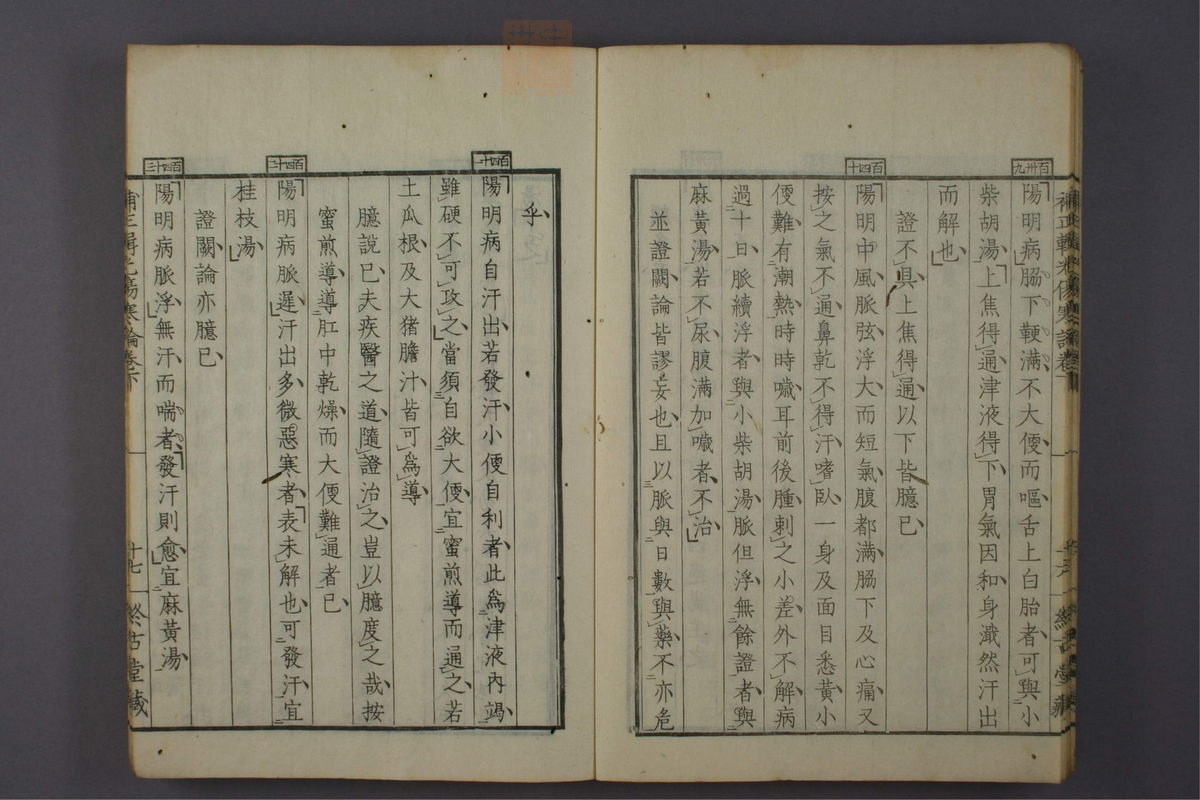 百卅九
陽明病脇下鞕滿不大便而嘔舌上白胎者可與小
柴胡湯上焦得通津液得下胃氣因和身濈然汗出
而解也
證不具上焦得通以下皆臆已
百四十
陽明中風脈弦浮大而短氣腹都滿脇下及心痛又
按之氣不通鼻乾不得汗嗜臥一身及面目悉黃小
便難有潮熱時時噦耳前後腫刺之小差外不解病
過十日脈續浮者與小柴胡湯脈但浮無餘證者與
麻黃湯若不尿腹滿加噦者不治
並證闕論皆謬妄也且以脈與日數與藥不亦危
乎
百四十一
陽明病自汗出若發汗小便自利者此爲津液內竭
雖硬不可攻之當須自欲大便宜蜜煎導而通之若
土瓜根及大猪膽汁皆可爲導
臆說已夫疾醫之道隨證治之豈以臆度之哉按
蜜煎導導肛中乾燥而大便難通者已
百四十二
陽明病脈遲汗出多微惡寒者表未解也可發汗宜
桂枝湯
證闕論亦臆已
百四十三
陽明病脈浮無汗而喘者發汗則愈宜麻黃湯
傷寒論卷下
十七